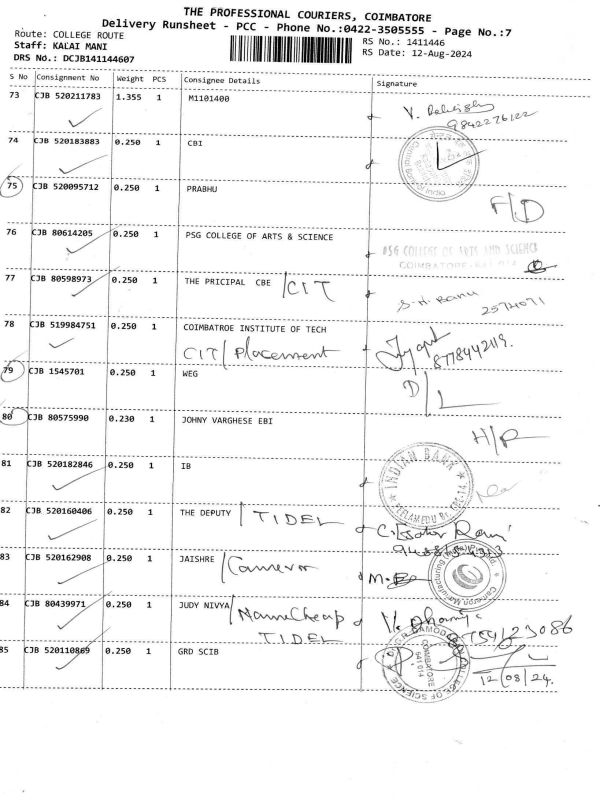 THE PROFESSIONAL COURIERS, COIMBATORE
Delivery Runsheet - PCC - Phone No.:0422-3505555 - Page No.:7
Route: COLLEGE ROUTE
Staff: KALAI MANI
DRS No.: DCJB141144607
RS No.: 1411446
RS Date: 12-Aug-2024
S No Consignment No Weight PCS Consignee Details Signature
73 CJB 520211783 1.355 1 M1101400
9842276122
74 CJB 520183883 0.250 1 CBI
75 CJB 520095712 0.250 1 PRABHU
F/D
76 CJB 80614205 0.250 1 PSG COLLEGE OF ARTS & SCIENCE
PSG COLLEGE OF ARTS AND SCIENCE
COIMBATORE
77 CJB 80598973 0.250 1 THE PRICIPAL CBE /CIT
2574071
78 CJB 519984751 0.250 1 COIMBATROE INSTITUTE OF TECH
CIT/Placement
8778442119.
79 CJB 1545701 0.250 1 WEG
D/L
80 CJB 80575990 0.230 1 JOHNY VARGHESE EBI
81 CJB 520182846 0.250 1 IB
INDIAN BANK
82 CJB 520160406 0.250 1 THE DEPUTY / TIDEL
83 CJB 520162908 0.250 1 JAISHRE
84 CJB 80439971 0.250 1 JUDY NIVYA / NameCheap
TIDEL
85 CJB 520110869 0.250 1 GRD SCIB
COIMBATORE
641 014
12/08/24.